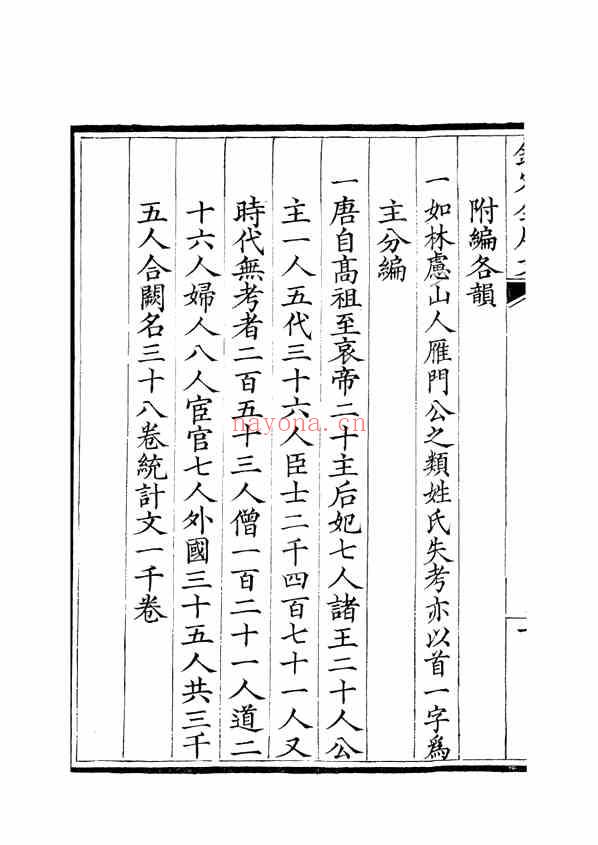 附編各韻
一如林慮山人雁門公之類姓氏失考亦以首一字爲
主分編
一唐自高祖至哀帝二十主后妃七人諸王二十人公
主一人五代三十六人臣士二千四百七十一人又
時代無考者二百五十三人僧一百二十一人道二
十六人婦人八人宦官七人外國三十五人共三千
五人合闕名三十八卷統計文一千卷
nayona.cn